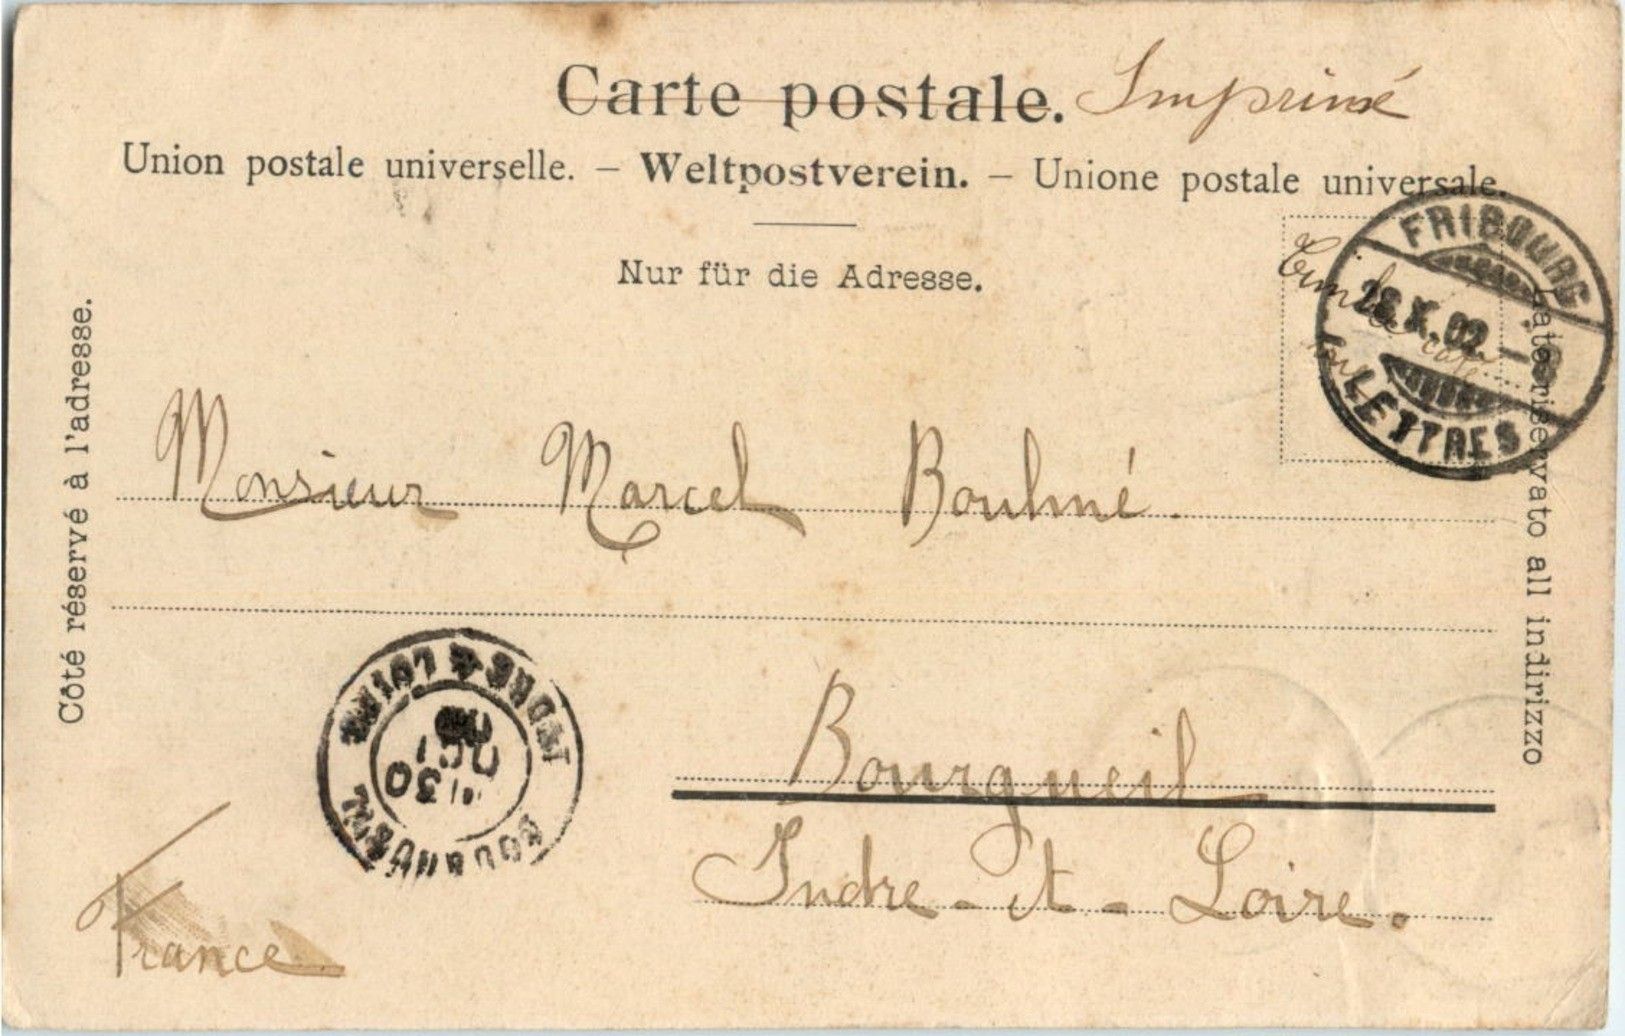 Carte postale. Imprimé
Union postale universelle. – Weltpostverein. – Unione postale universale.
Nur für die Adresse.
Côté réservé à l'adresse.
Lato riservato all indirizzo
FRIBOURG
28.X.02.–8
LETTRES
Monsieur Marcel Boulmé.
INDRE-ET-LOIRE
30 OCT 02
BOURGUEIL
Bourgueil
Indre-et-Loire.
France